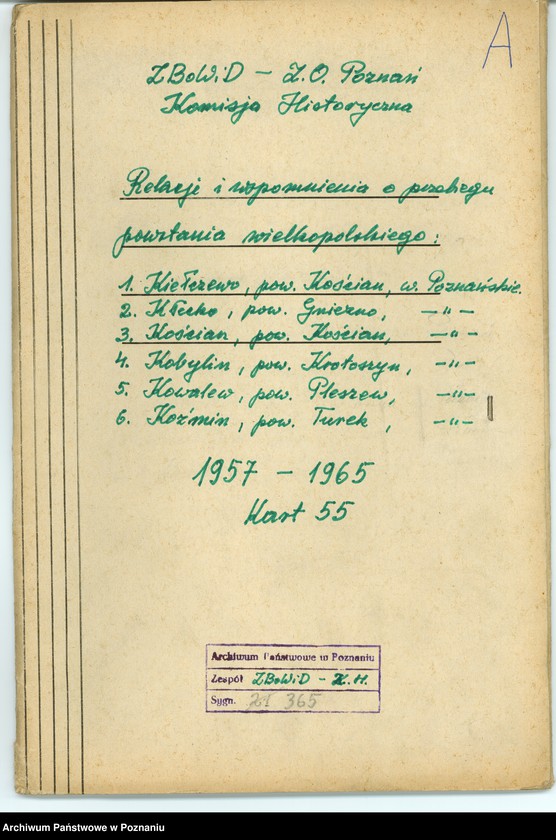 A
ZBoWiD - Z.O. Poznań
Komisja Historyczna
Relacje i wspomnienia o przebiegu
powstania wielkopolskiego:
1. Kiełczewo, pow. Kościan, w. Poznańskie.
2. Kłecko, pow. Gniezno, -"-
3. Kościan, pow. Kościan, -"-
4. Kobylin, pow. Krotoszyn, -"-
5. Kowalew, pow. Pleszew, -"-
6. Koźmin, pow. Turek, -"-
1957 - 1965
Kart 55
Archiwum Państwowe w Poznaniu
Zespół ZBoWiD - K.H.
Sygn. 365
Archiwum Państwowe w Poznaniu